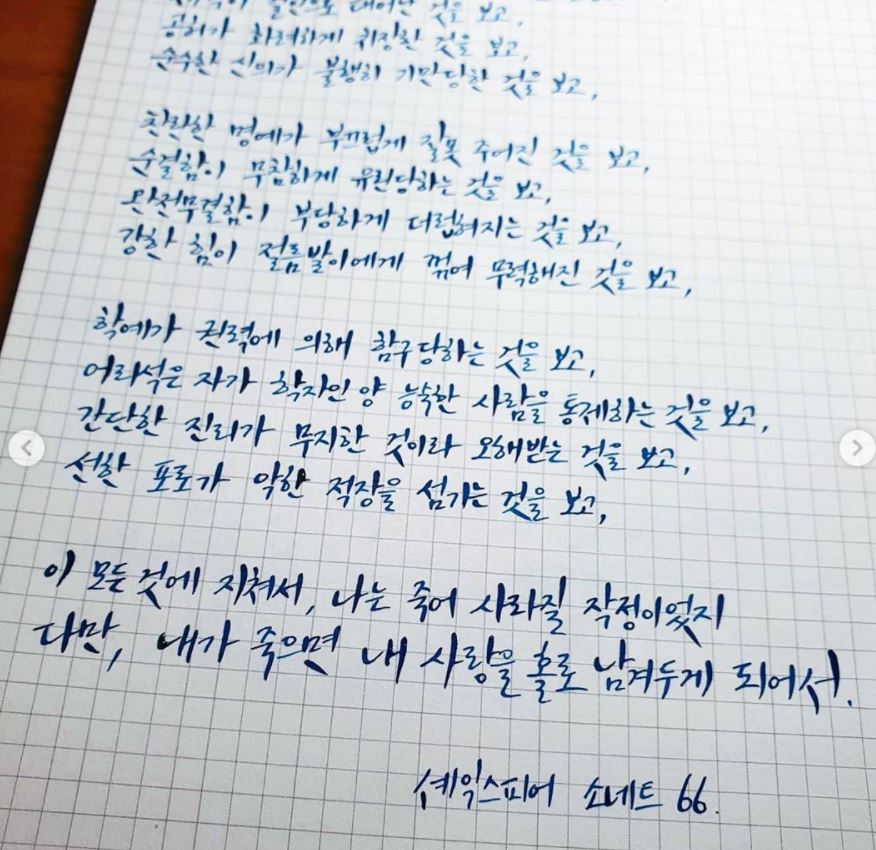 것을 보고,
공허가 화려하게 위장한 것을 보고,
순수한 신의가 불행히 기만당한 것을 보고,
찬란한 명예가 부끄럽게 잘못 주어진 것을 보고,
순결함이 무참하게 유린당하는 것을 보고,
완전무결함이 부당하게 더럽혀지는 것을 보고,
강한 힘이 절름발이에게 꺾여 무력해진 것을 보고,
학예가 권력에 의해 함구당하는 것을 보고,
어리석은 자가 학자인 양 능숙한 사람을 통제하는 것을 보고,
간단한 진리가 무지한 것이라 오해받는 것을 보고,
선한 포로가 악한 적장을 섬기는 것을 보고,
이 모든 것에 지쳐서, 나는 죽어 사라질 작정이었지
다만, 내가 죽으면 내 사랑을 홀로 남겨두게 되어서.
셰익스피어 소네트 66.